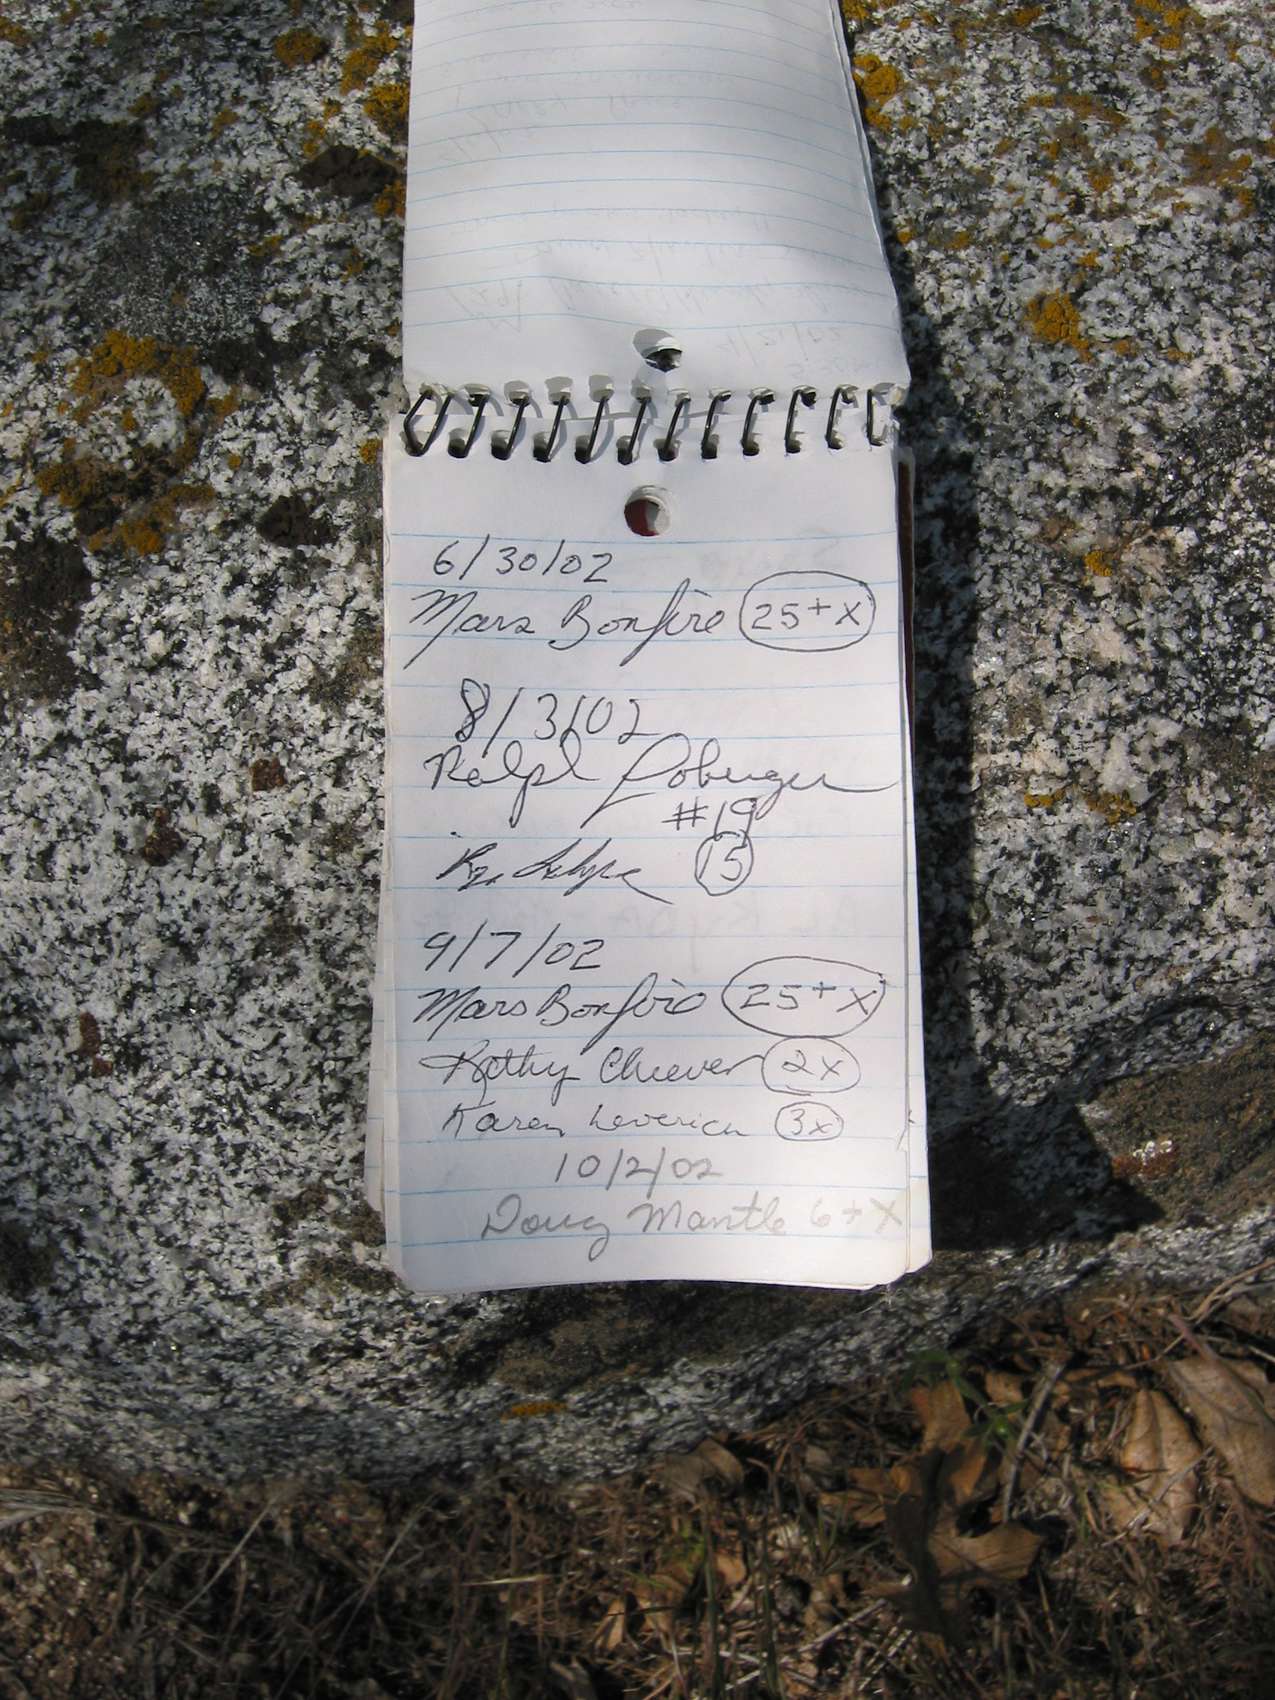 6/30/02
Mars Bonfire 25+X
8/3/02
Ralph
#19
15
9/7/02
Mars Bonfire 25+X
Kathy Cheever 2X
Karen Leverich 3x
10/2/02
Doug Mantle 6+X